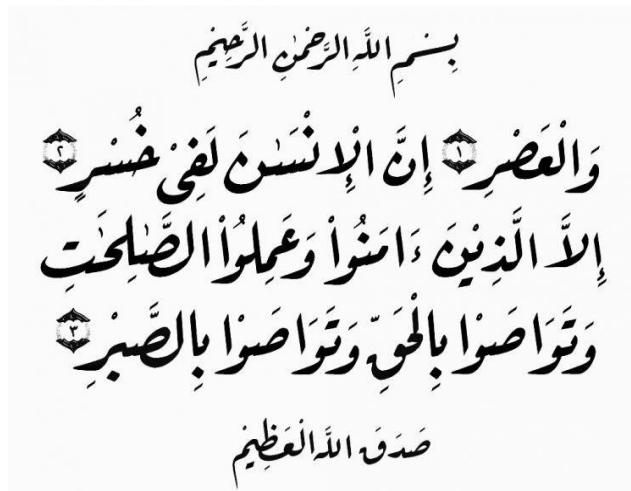 بِسْمِ اللَّهِ الرَّحْمٰنِ الرَّحِيْمِ
وَالْعَصْرِ ١ إِنَّ الْإِنْسَـٰنَ لَفِىْ خُسْرٍ ٢
إِلاَّ الَّذِيْنَ ءَامَنُواْ وَعَمِلُواْ الصَّـٰلِحَـٰتِ
وَتَوَاصَوْا بِالْحَقِّ وَتَوَاصَوْا بِالصَّبْرِ ٣
صَدَقَ اللَّهُ الْعَظِيْمُ